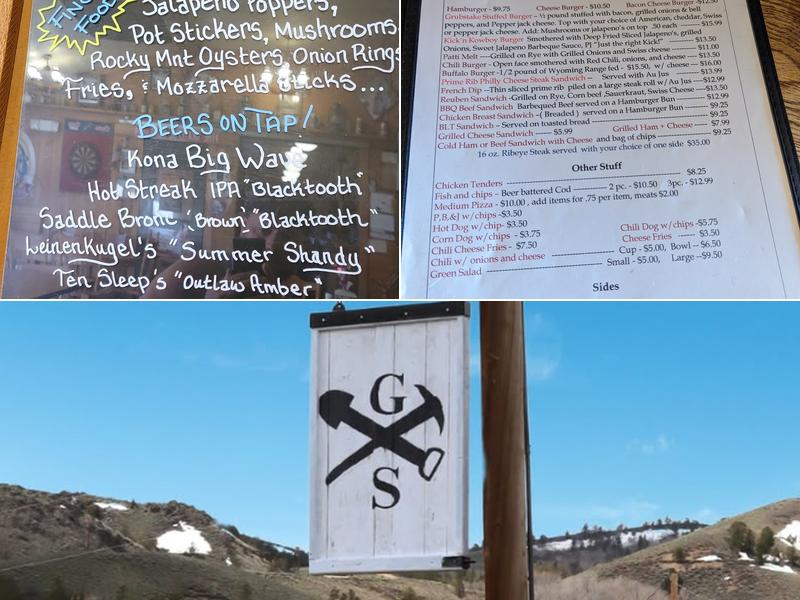 FINGER
FOOD
Jalapeno Poppers,
Pot Stickers, Mushrooms
Rocky Mnt Oysters, Onion Rings
Fries, & Mozzarella Sticks...
BEERS ON TAP!
Kona Big Wave
Hot Streak IPA "Blacktooth"
Saddle Bronc (Brown) "Blacktooth"
Leinenkugel's "Summer Shandy"
Ten Sleep's "Outlaw Amber"
Hamburger - $9.75 Cheese Burger - $10.50 Bacon Cheese Burger -$12.50
Grubstake Stuffed Burger - ½ pound stuffed with bacon, grilled onions & bell
peppers, and Pepper jack cheese. Top with your choice of American, cheddar, Swiss
or pepper jack cheese. Add: Mushrooms or jalapeno's on top .50 each ------ $15.99
Kick'n Kowboy Burger Smothered with Deep Fried Sliced Jalapeno's, grilled
Onions, Sweet Jalapeno Barbeque Sauce, PJ "Just the right Kick!" ---- $13.50
Patti Melt ----Grilled on Rye with Grilled Onions and Swiss cheese ------ $11.00
Chili Burger - Open face smothered with Red Chili, onions, and cheese ---- $13.50
Buffalo Burger -1/2 pound of Wyoming Range fed - $15.50, w/ cheese --- $16.00
Prime Rib Philly Cheese Steak Sandwich -- Served with Au Jus ------ $13.99
French Dip --Thin sliced prime rib piled on a large steak roll w/ Au Jus --$12.99
Reuben Sandwich -Grilled on Rye, Corn beef ,Sauerkraut, Swiss Cheese ---$13.50
BBQ Beef Sandwich Barbequed Beef served on a Hamburger Bun ------ $12.99
Chicken Breast Sandwich - ( Breaded ) served on a Hamburger Bun ---- $9.25
BLT Sandwich – Served on toasted bread ------------------ $9.25
Grilled Cheese Sandwich ------ $5.99 Grilled Ham + Cheese ------ $7.99
Cold Ham or Beef Sandwich with Cheese and bag of chips ------------ $9.25
16 oz. Ribeye Steak served with your choice of one side $35.00
Other Stuff
Chicken Tenders ------------------ $8.25
Fish and chips – Beer battered Cod ------------ 2 pc. - $10.50 3pc. - $12.99
Medium Pizza - $10.00 , add items for .75 per item, meats $2.00
P,B,&J w/chips -$3.50
Hot Dog w/chip- $3.50 Chili Dog w/chips -$5.75
Corn Dog w/chips - $3.75 Cheese Fries ----- $3.50
Chili Cheese Fries - $7.50
Chili w/ onions and cheese ------------------ Cup - $5.00, Bowl -- $6.50
Green Salad ------------------ Small - $5.00, Large --$9.50
Sides
G
S